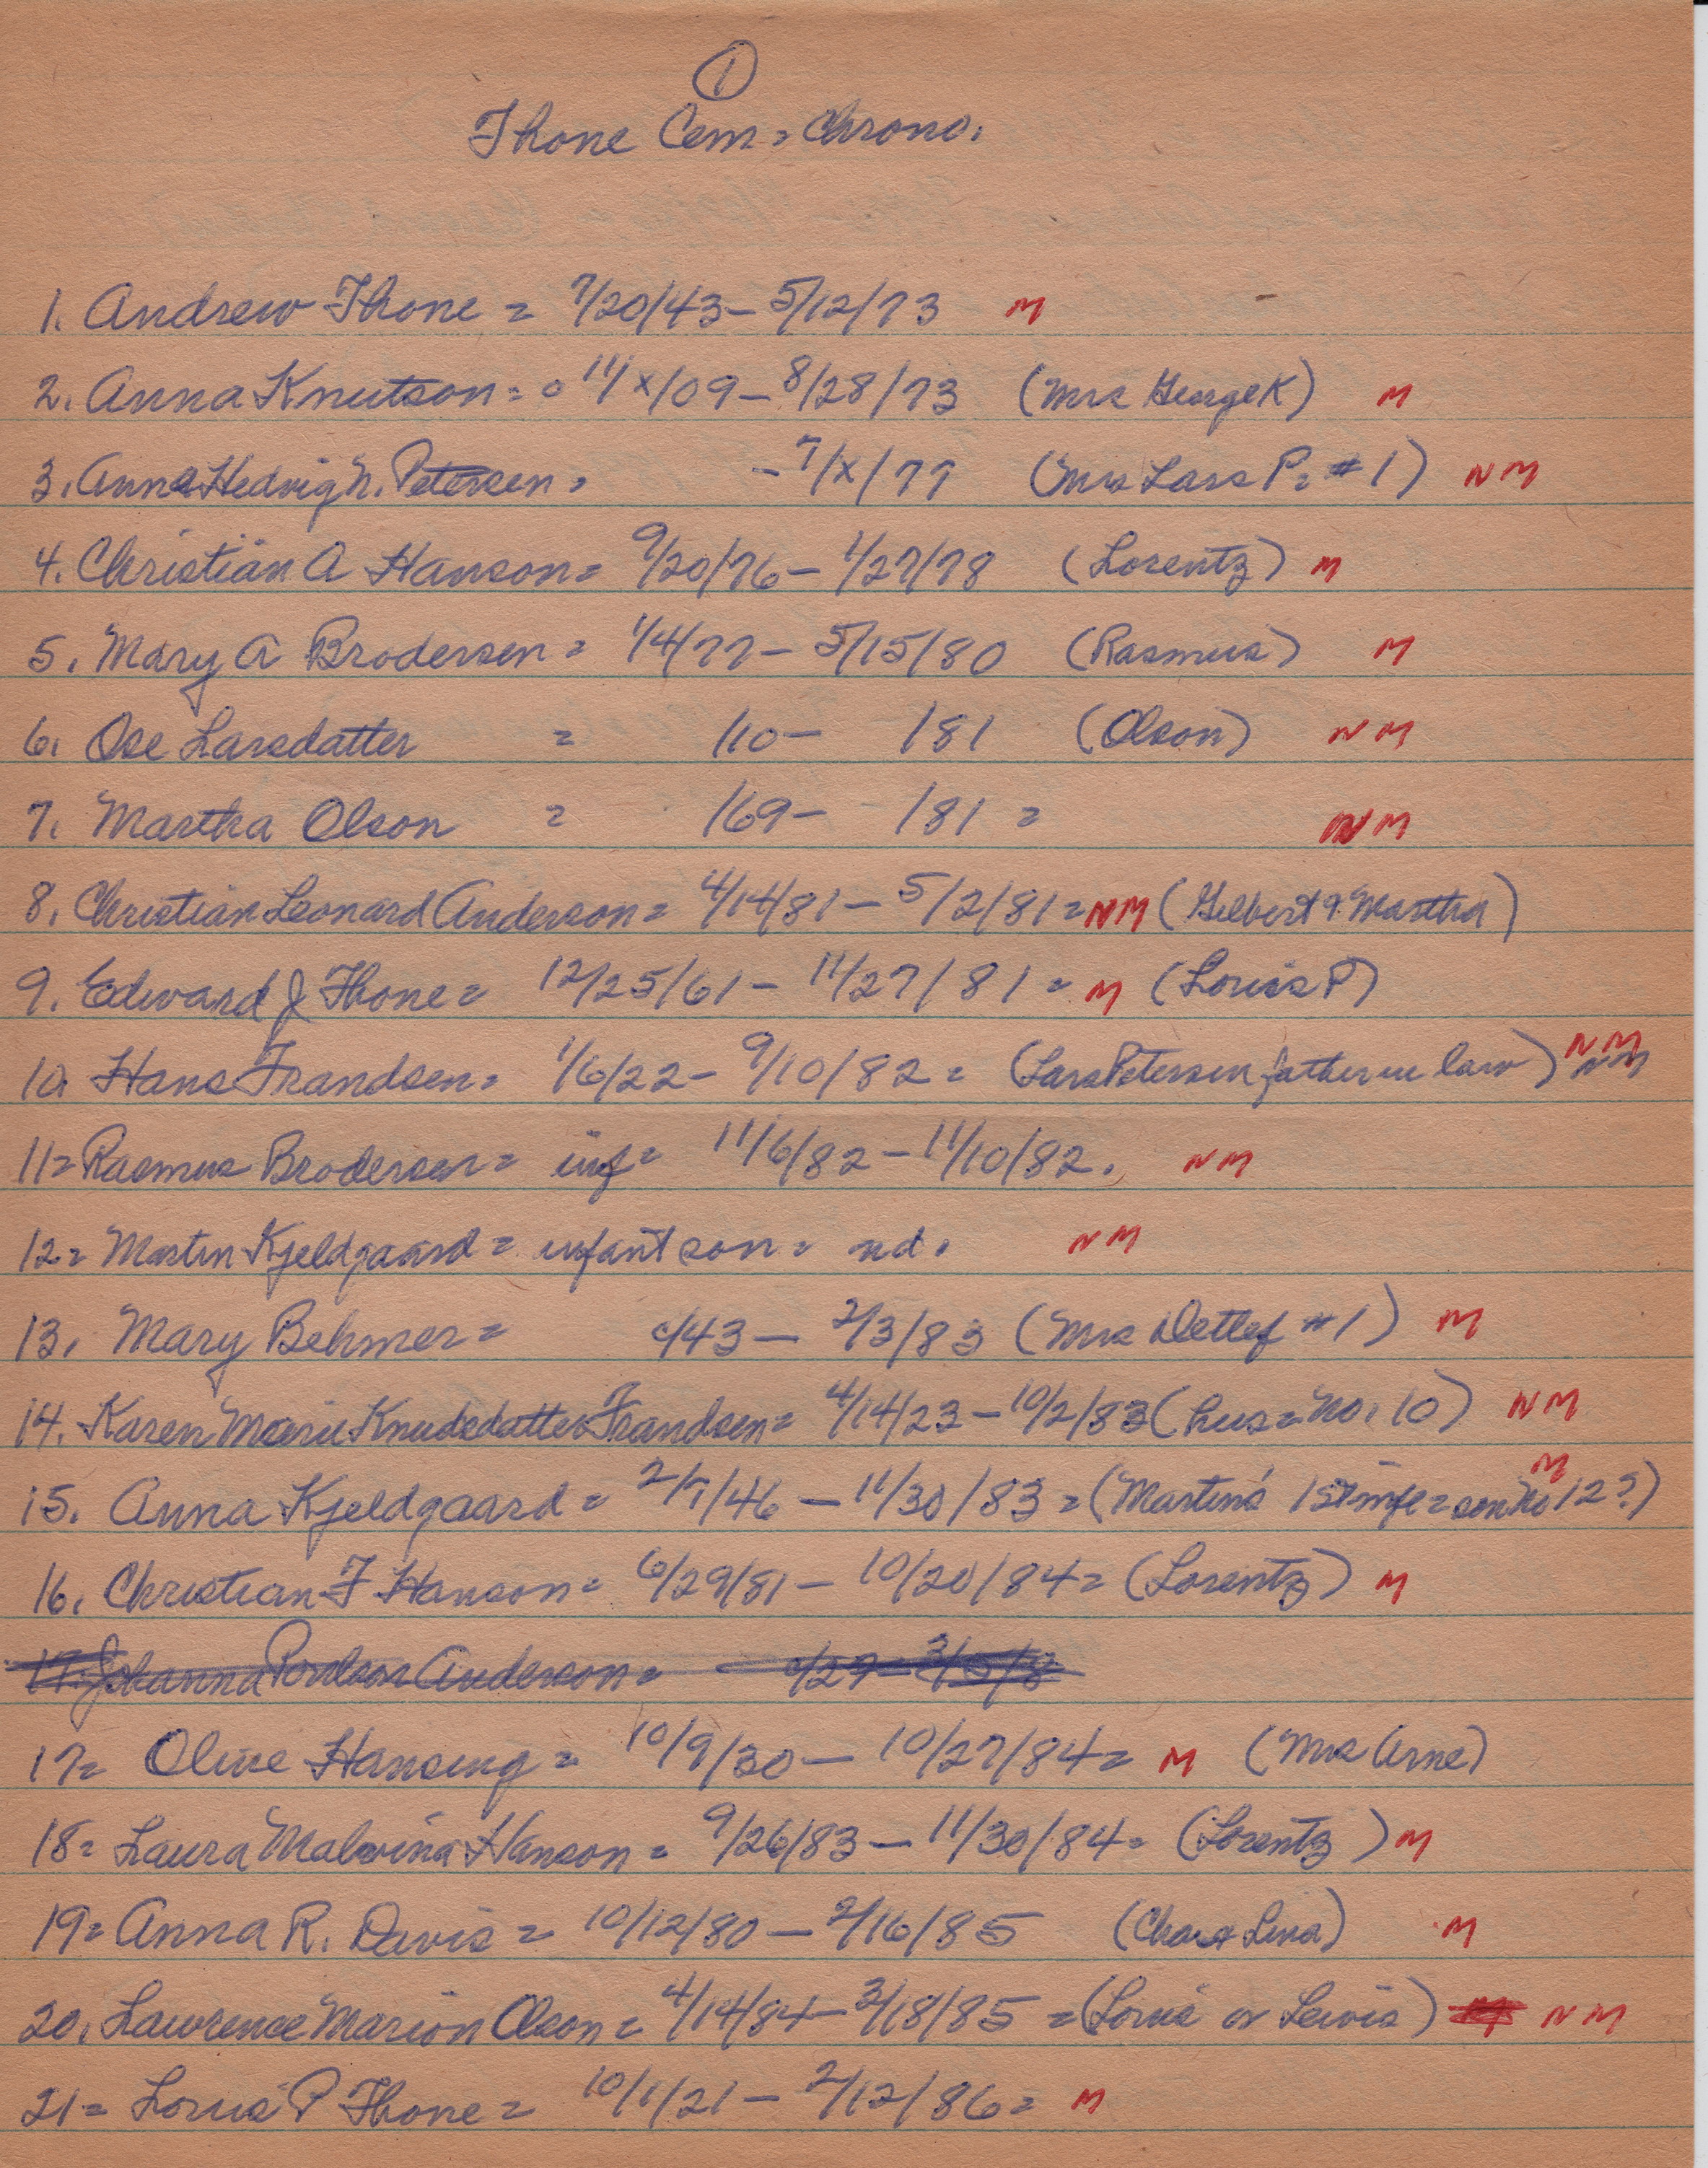 1
Thone Cem = Chrono.
1. Andrew Thone = 7/20/43 - 5/12/73 M
2. Anna Knutson = 11/x/09 - 8/28/73 (Mrs George K) M
3. Anna Hedvig N. Petersen = - 7/x/77 (Mrs Lars P = #1) NM
4. Christian A Hanson = 9/20/76 - 1/27/78 (Lorentz) M
5. Mary A Brodersen = 1/4/77 - 5/15/80 (Rasmus) M
6. Ose Larsdatter = /10 - /81 (Olson) NM
7. Martha Olson = /69 - /81 = NM
8. Christian Leonard Anderson = 4/14/81 - 5/2/81 = NM (Gilbert & Martha)
9. Edward J Thone = 12/25/61 - 11/27/81 = M (Louis P)
10. Hans Frandsen = 1/6/22 - 9/10/82 = (Lars Petersen father in law) NM NM
11 = Rasmus Brodersen = inf = 11/6/82 - 11/10/82. NM
12 = Martin Kjeldgaard = infant son = nd. NM
13. Mary Behmer = c/43 - 2/3/83 (Mrs Detlef #1) M
14. Karen Marie Knudsdatter Frandsen = 4/14/23 - 10/2/83 (hus = No. 10) NM
15. Anna Kjeldgaard = 2/7/46 - 11/30/83 = (Martin's 1st wife = son No 12?) M
16. Christian F Hanson = 6/29/81 - 10/20/84 = (Lorentz) M
17. Johanna Anderson = c/27 -
17 = Olive Hansing = 10/9/30 - 10/27/84 = M (Mrs Arne)
18 = Laura Malvina Hanson = 9/26/83 - 11/30/84 = (Lorentz) M
19 = Anna R. Davis = 10/12/80 - 2/16/85 (Chas & Lena) M
20. Lawrence Marion Olson = 4/14/84 - 3/18/85 = (Louis or Lewis) NM
21 = Louis P Thone = 10/1/21 - 2/12/86 = M